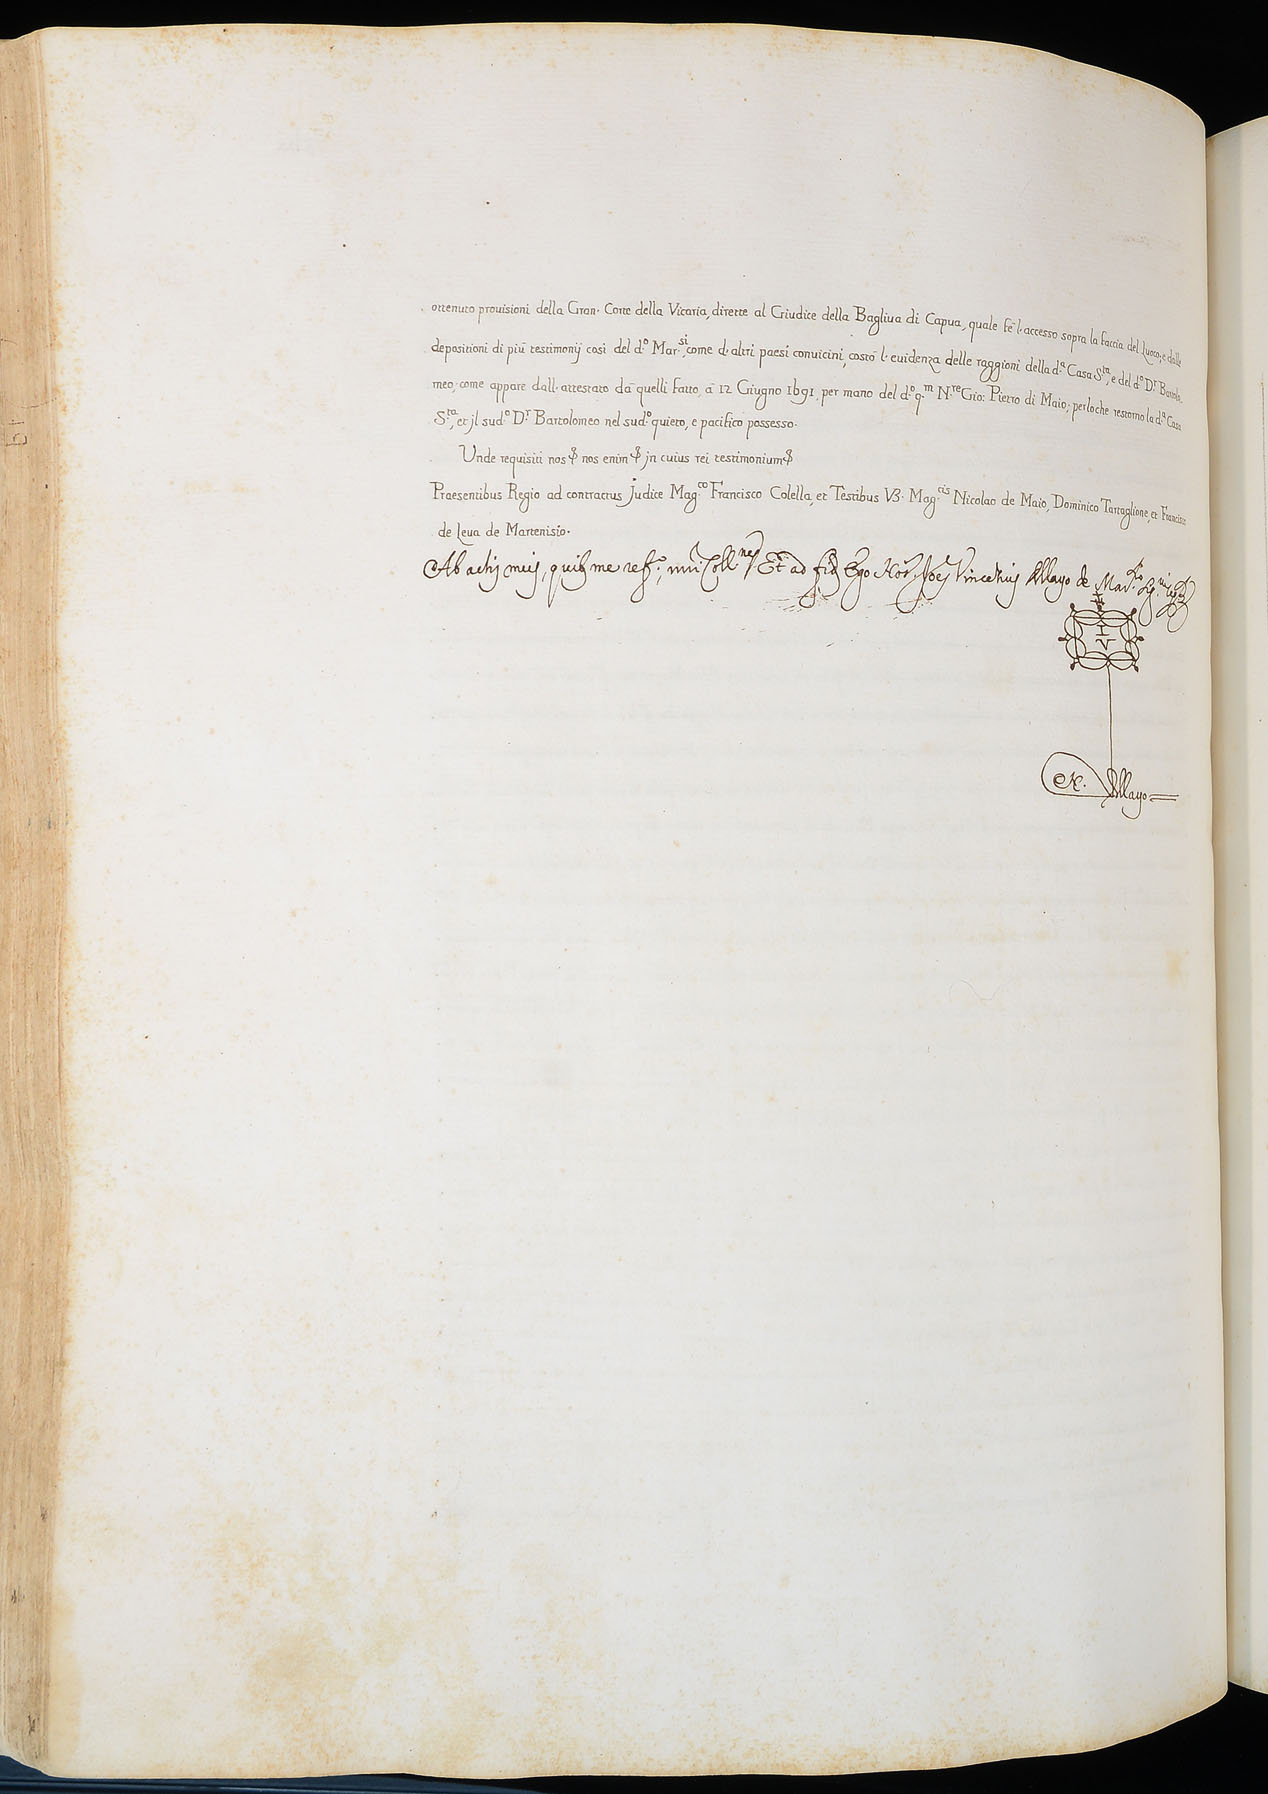 ottenuto prouisioni della Gran· Corte della Vicaria, dirette al Giudice della Bagliua di Capua, quale fe l·accesso sopra la faccia del luoco, e dalle
depositioni di più testimonij così del d.º Mar.si, come d·altri paesi conuicini, costò l·euidenza delle raggioni della d.ª Casa S.ta, e del d.º D.r Bartolo-
meo·come appare dall·attestato dà quelli fatto, à 12 Giugno 1691, per mano del d.º q.m N.re Gio: Pietro di Maio, perloche restorno la d.ª Casa
S.ta, et jl sud.º D.r Bartolomeo nel sud.º quieto, e pacifico possesso·
Unde requisiti nos & nos enim & jn cuius rei testimonium &
Praesentibus Regio ad contractus Judice Mag.co Francisco Colella, et Testibus V3· Mag.cis Nicolao de Maio, Dominico Tartaglione, et Francisco
de Leua de Martenisio·
Ab actis meis, quibs me ref., Coll.ne Et ad fid Ego Not. Joes Vincentius de Mayo de Mar.
I
V
N. de Mayo